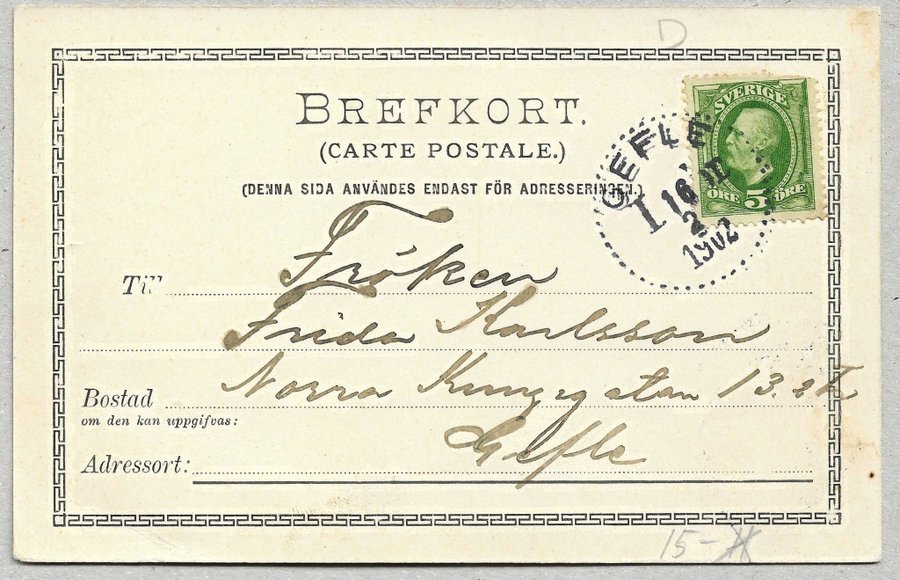 D
BREFKORT.
(CARTE POSTALE.)
(DENNA SIDA ANVÄNDES ENDAST FÖR ADRESSERINGEN.)
SVERIGE
ÖRE 5 ÖRE
GEFLE
1902
Till Fröken
Frida Karlsson
Bostad Norra Kungsgatan 13. 2 Tr
om den kan uppgifvas:
Gefle
Adressort:
15-